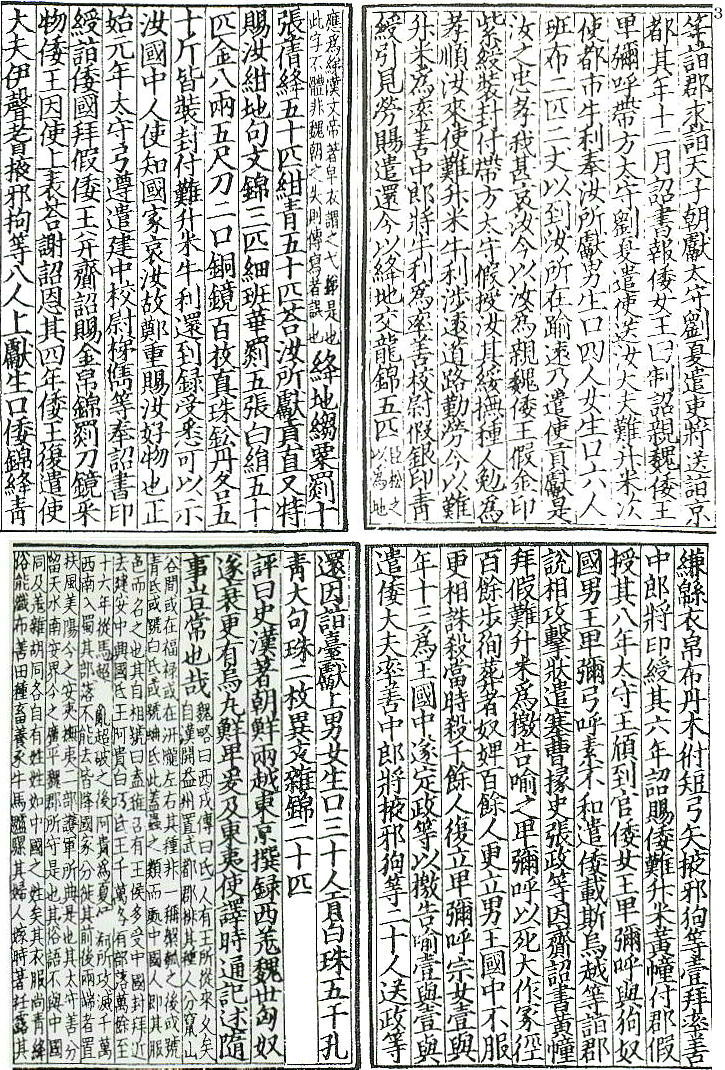 3
等詣郡求詣天子朝獻太守劉夏遣吏將送詣京
都其年十二月詔書報倭女王曰制詔親魏倭王
卑彌呼帶方太守劉夏遣使送汝大夫難升米次
使都市牛利奉汝所獻男生口四人女生口六人
班布二匹二丈以到汝所在踰遠乃遣使貢獻是
汝之忠孝我甚哀汝今以汝為親魏倭王假金印
紫綬裝封付帶方太守假授汝其綏撫種人勉為
孝順汝來使難升米牛利涉遠道路勤勞今以難
升米為率善中郎將牛利為率善校尉假銀印青
綬引見勞賜遣還今以絳地交龍錦五匹臣松之以為地
應為綈漢文帝著皁衣謂之弋綈是也
此字不體非魏朝之失則傳寫者誤也
絳地縐粟罽十
張蒨絳五十匹紺青五十匹答汝所獻貢直又特
賜汝紺地句文錦三匹細班華罽五張白絹五十
匹金八兩五尺刀二口銅鏡百枚真珠鈆丹各五
十斤皆裝封付難升米牛利還到錄受悉可以示
汝國中人使知國家哀汝故鄭重賜汝好物也正
始元年太守弓遵遣建中校尉梯儁等奉詔書印
綬詣倭國拜假倭王并齎詔賜金帛錦罽刀鏡采
物倭王因使上表答謝詔恩其四年倭王復遣使
大夫伊聲耆掖邪拘等八人上獻生口倭錦絳青
縑緜衣帛布丹木𤝔短弓矢掖邪狗等壹拜率善
中郎將印綬其六年詔賜倭難升米黃幢付郡假
授其八年太守王頎到官倭女王卑彌呼與狗奴
國男王卑彌弓呼素不和遣倭載斯烏越等詣郡
說相攻擊狀遣塞曹掾史張政等因齎詔書黃幢
拜假難升米為檄告喻之卑彌呼以死大作冢徑
百餘步徇葬者奴婢百餘人更立男王國中不服
更相誅殺當時殺千餘人復立卑彌呼宗女壹與
年十三為王國中遂定政等以檄告喻壹與壹與
遣倭大夫率善中郎將掖邪狗等二十人送政等
還因詣臺獻上男女生口三十人貢白珠五千孔
青大句珠二枚異文雜錦二十匹
評曰史漢著朝鮮兩越東京撰錄西羌魏世匈奴
遂衰更有烏丸鮮卑爰及東夷使譯時通記述隨
事豈常也哉
魏略曰西戎傳曰氐人有王所從來久矣
自漢開益州置武都郡排其種人分竄山
谷間或在福祿或在汧隴左右其種非一稱槃瓠之後或號
青氐或號白氐或號蚺氐此蓋蟲之類而處中國人即其服
色而名之也其自相號曰盍稚各有王侯多受中國封拜近
去建安中興國氐王阿貴白項氐王千萬各有部落萬餘至
十六年從馬超亂超破之後阿貴為夏所攻滅千萬
西南入蜀其部落不能去皆降國家分徙其前後兩端者置
扶風美陽今之安夷撫夷二部護軍所典是也其太守善分
留天水南安界今之廣平魏郡所守是也其俗語不與中國
同及羌雜胡同各自有姓姓如中國之姓矣其衣服尚青絳
俗能織布善田種畜養豕牛馬驢騾其婦人嫁時著衽露其